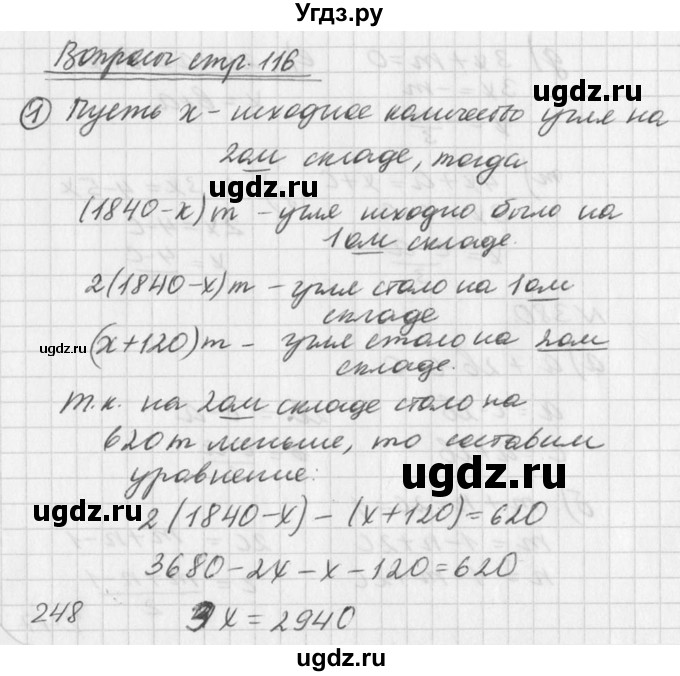 Угдз.ру
Вопросы стр. 116
① Пусть x - исходное количество угля на
2ом складе, тогда
ugdz.ru
ugdz.ru
(1840-x)т - угля исходно было на
1ом складе.
ugdz.ru
2(1840-x)т - угля стало на 1ом
складе
ugdz.ru (x+120)т - угля стало на 2ом
складе.
ugdz.ru
Т.к. на 2ом складе стало на
620т меньше, то составим
ugdz.ru
уравнение:
2(1840-x) - (x+120) = 620
ugdz.ru
3680-2x-x-120=620
248 3x = 2940
ugdz.ru
ugdz.ru